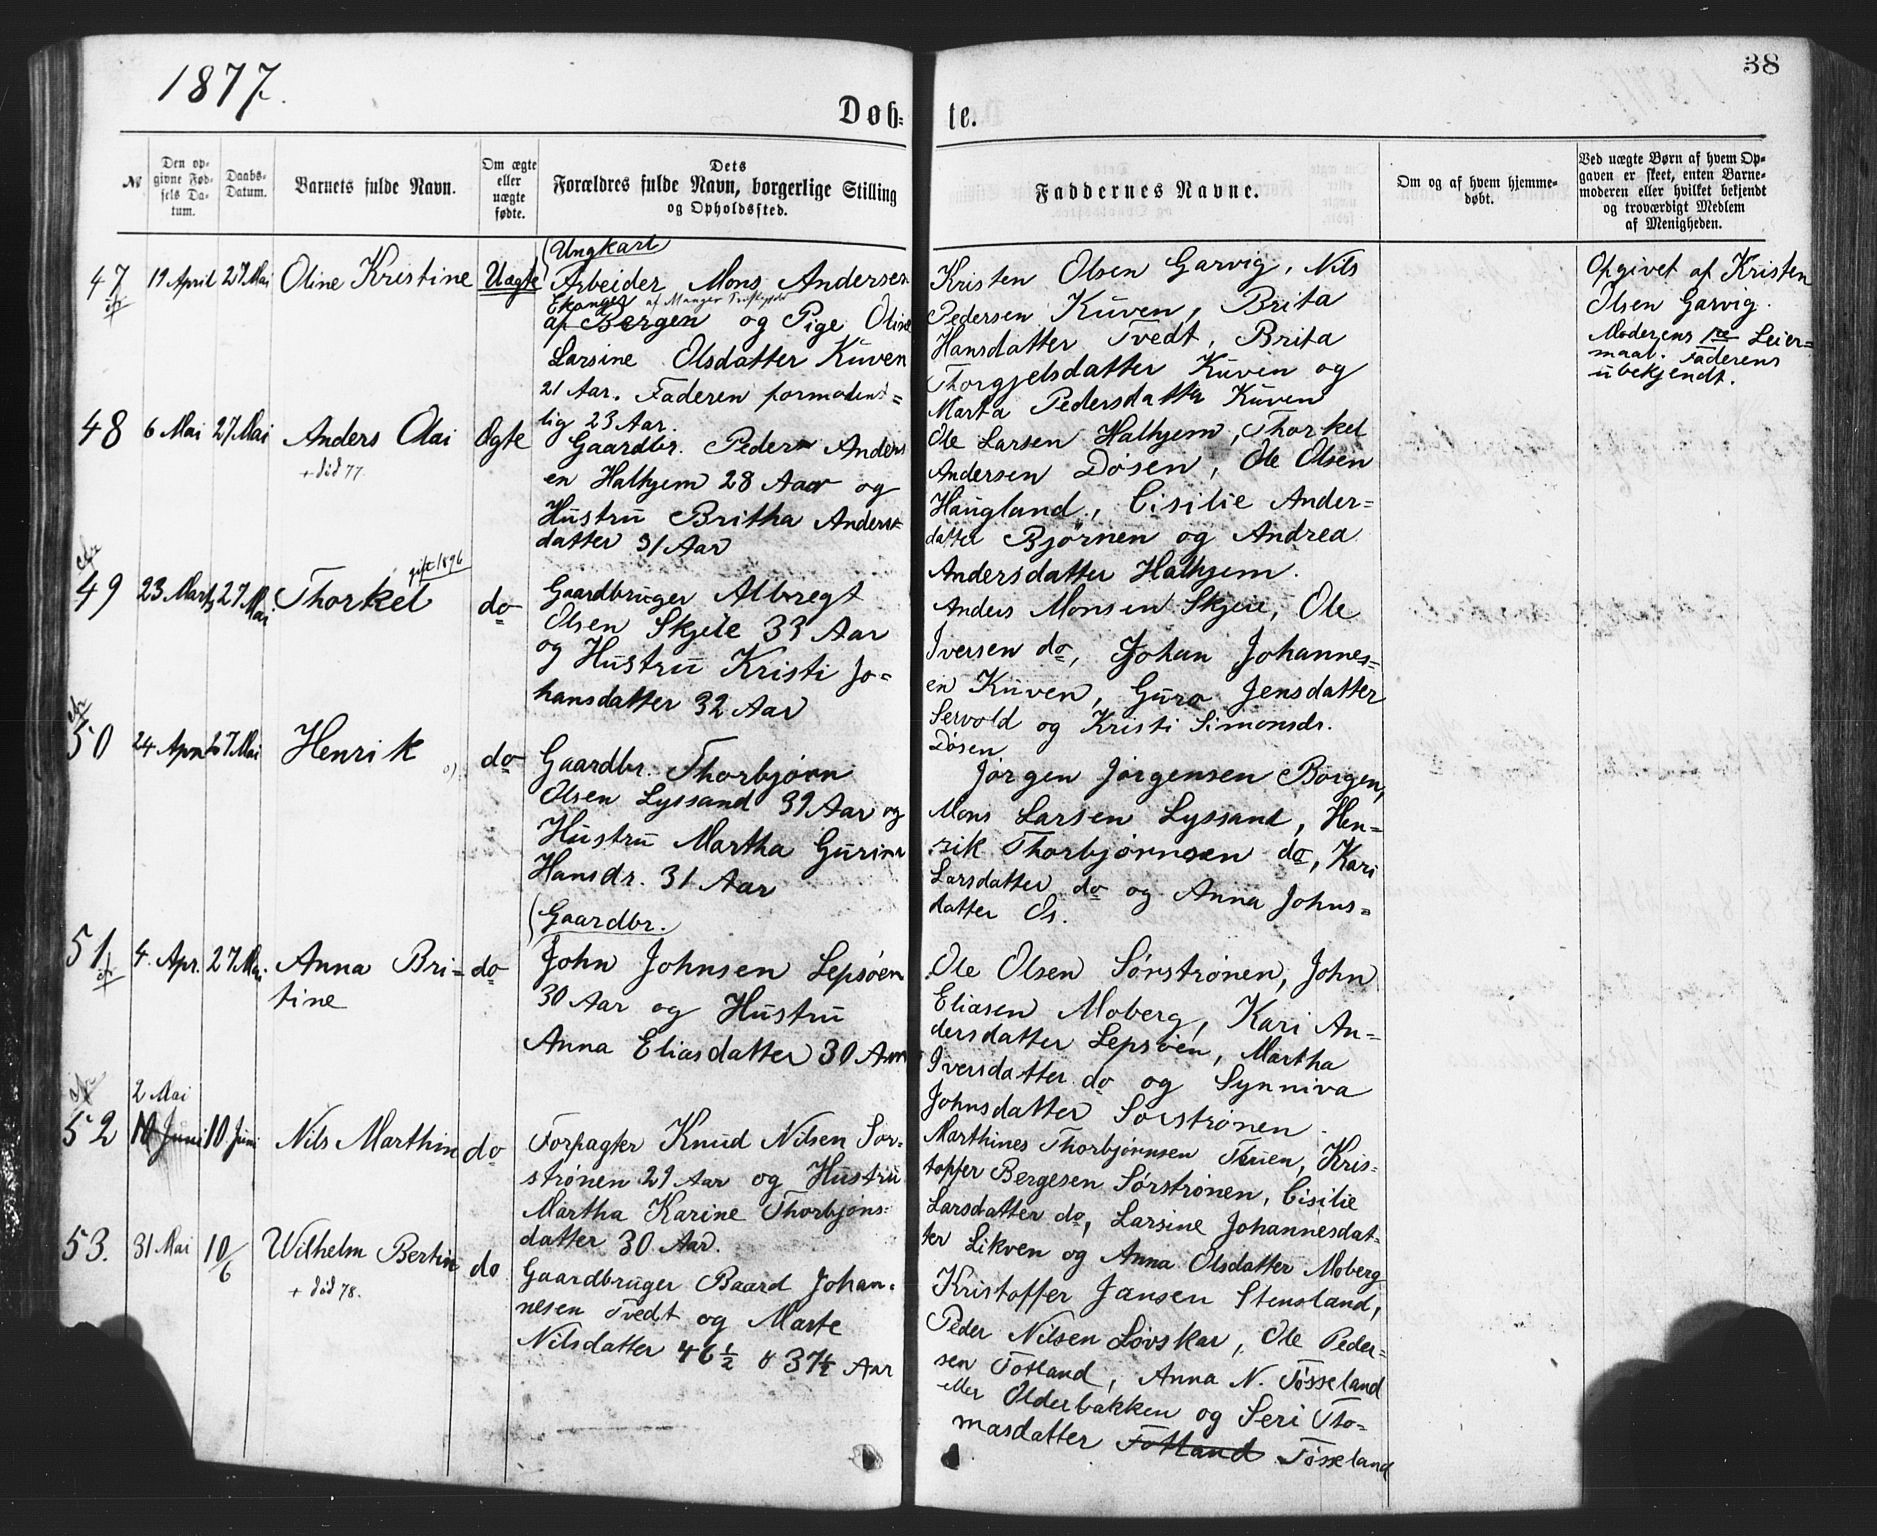 1877.
38
Døb-
te.
№
Den op-
givne Fød-
sels Da-
tum.
Daabs-
Datum.
Barnets fulde Navn.
Om ægte
eller
uægte
fødte.
Dets
Forældres fulde Navn, borgerlige Stilling
og Opholdssted.
Faddernes Navne.
Om og af hvem hjemme-
døbt.
Ved uægte Børn af hvem Op-
gaven er skeet, enten Barne-
moderen eller hvilket bekjendt
og troværdigt Medlem
af Menigheden.
47
19 April
27 Mai
Oline Kristine
Uægte
Ungkarl
Arbeider Mons Andersen
Ekanger af Manger
af Bergen og Pige Oline
Larsine Olsdatter Kuven
21 Aar. Faderen formodent-
lig 23 Aar.
Kristen Olsen Garvig, Nils
Pedersen Kuven, Brita
Hansdatter Tvedt, Brita
Thorgjelsdatter Kuven og
Marta Pedersdatter Kuven
Opgivet af Kristen
Olsen Garvig.
Moderens 1ste Leier-
maal. Faderens
ubekjendt.
48
6 Mai
27 Mai
Anders Olai
+ död 77.
Ægte
Gaardbr. Peder Anders
en Halhjem 28 Aar og
Hustru Britha Anders-
datter 31 Aar
Ole Larsen Halhjem, Thorkel
Andersen Døsen, Ole Olsen
Haugland, Cisilie Ander-
datter Bjørnen og Andrea
Andersdatter Halhjem.
49
23 Marts
27 Mai
gift 1896
Thorkel
do
Gaardbruger Albregt
Olsen Skjeie 33 Aar
og Hustru Kristi Jo-
hansdatter 32 Aar
Anders Monsen Skjeie, Ole
Iversen do, Johan Johannes-
en Kuven, Guro Jensdatter
Servold og Kristi Simonsdr.
Døsen
50
24 April
27 Mai
Henrik
do
Gaardbr. Thorbjørn
Olsen Lyssand 39 Aar og
Hustru Martha Gurine
Hansdr. 31 Aar
Jørgen Jørgensen Borgen,
Mons Larsen Lyssand, Hen-
rik Thorbjørnsen do, Kari
Larsdatter do og Anna Johns-
datter Os.
51
4. Apr.
27 Mai.
Anna Bri-
tine
do
Gaardbr.
John Johnsen Lepsøen
30 Aar og Hustru
Anna Eliasdatter 30 Aar
Ole Olsen Sørstrønen, John
Eliasen Moberg, Kari An-
dersdatter Lepsøen, Martha
Iversdatter do og Synniva
Johnsdatter Sørstrønen.
52
2 Mai
10 Juni
10. Juni
Nils Marthin
do
Forpagter Knud Nilsen Sør-
strønen 29 Aar og Hustru
Martha Karine Thorbjøns-
datter 30 Aar.
Marthines Thorbjørnsen Tuen, Kris-
toffer Bergesen Sørstrønen, Cisilie
Larsdatter do, Larsine Johannesdat-
ter Likven og Anna Olsdatter Moberg
53.
31 Mai
10/6
Wilhelm Bertin
+ död 78.
do
Gaardbruger Baard Johan-
nesen Tvedt og Marte
Nilsdatter 46½ & 37½ Aar
Kristoffer Jansen Stensland,
Peder Nilsen Løvskar, Ole Peder-
sen Totland, Anna N. Tøsseland
eller Olderbakken og Seri Tho-
masdatter Totland Tøsseland